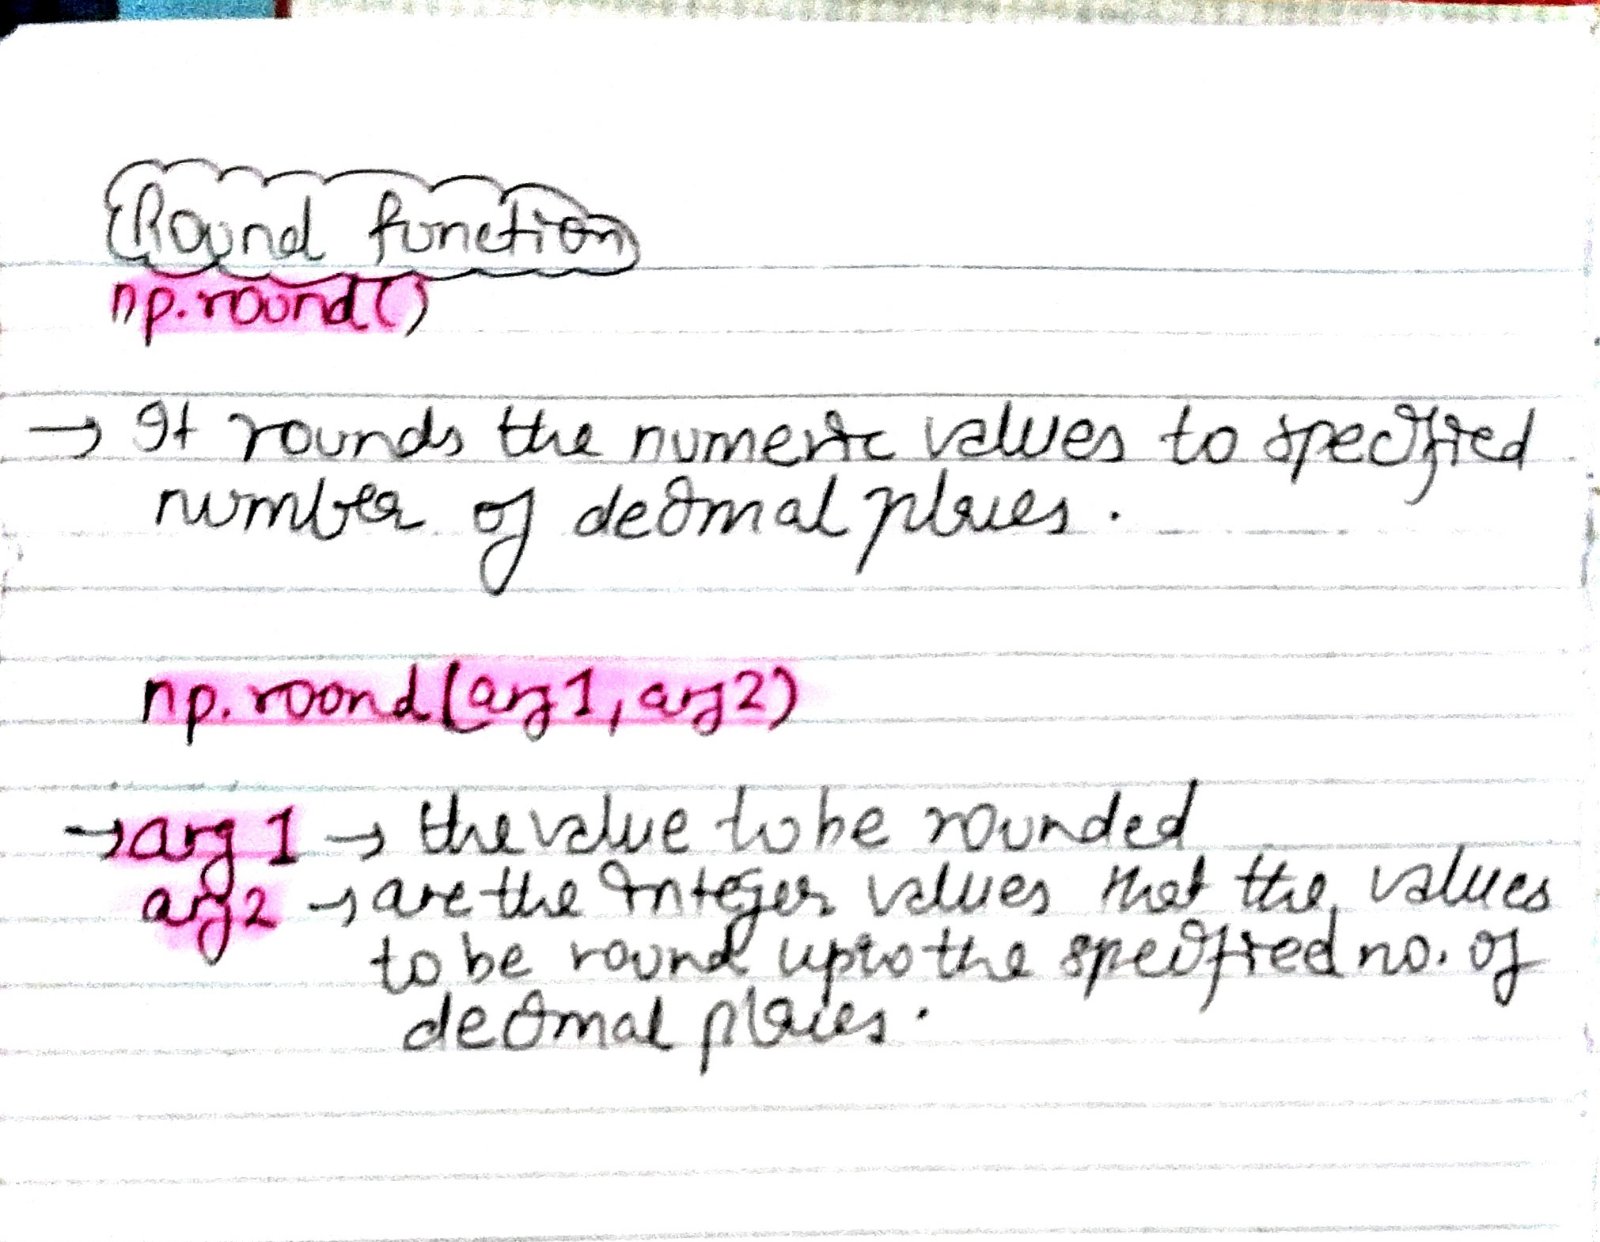 Round function
np.round()
→ It rounds the numeric values to specified
number of decimal places.
np.round(arg1, arg2)
→ arg 1 → the value to be rounded
arg2 → are the integer values that the values
to be round upto the specified no. of
decimal places.